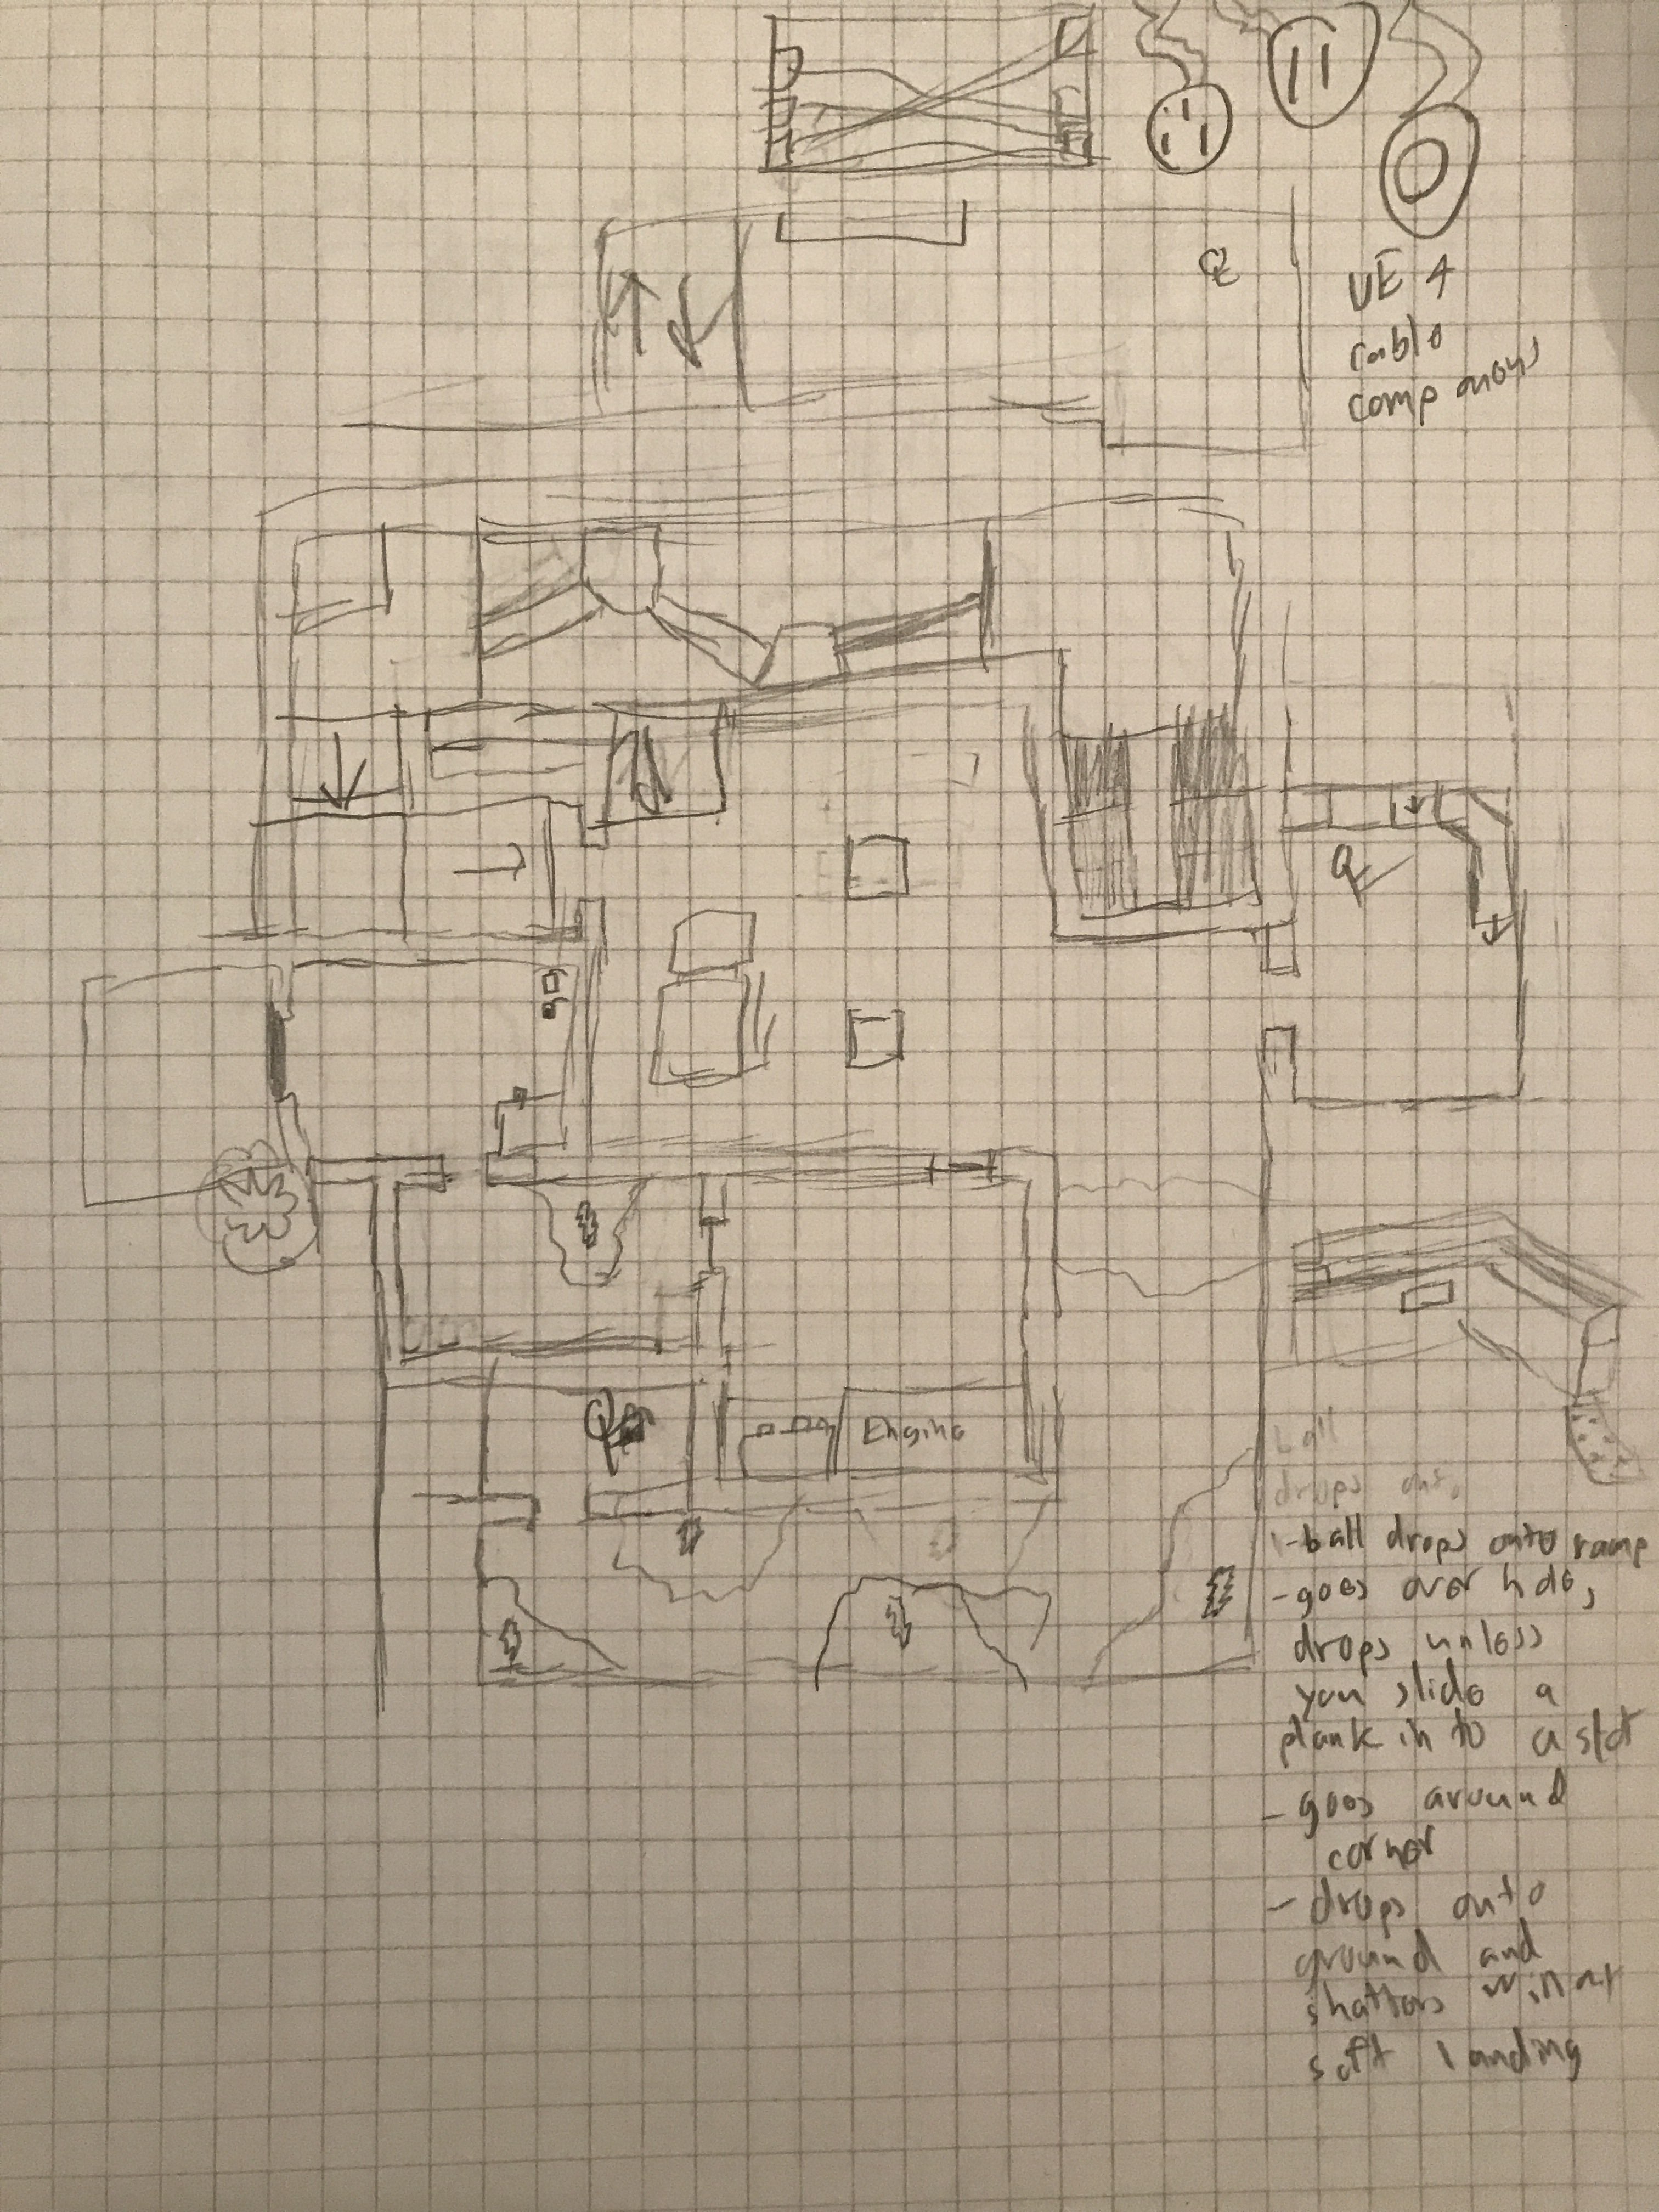 UE 4
cable
componens
Engine
ball
drops onto
- ball drops onto ramp
- goes over hole,
drops unless
you slide a
plank in to a slot
- goes around
corner
- drops onto
ground and
shatters w/in
soft landing